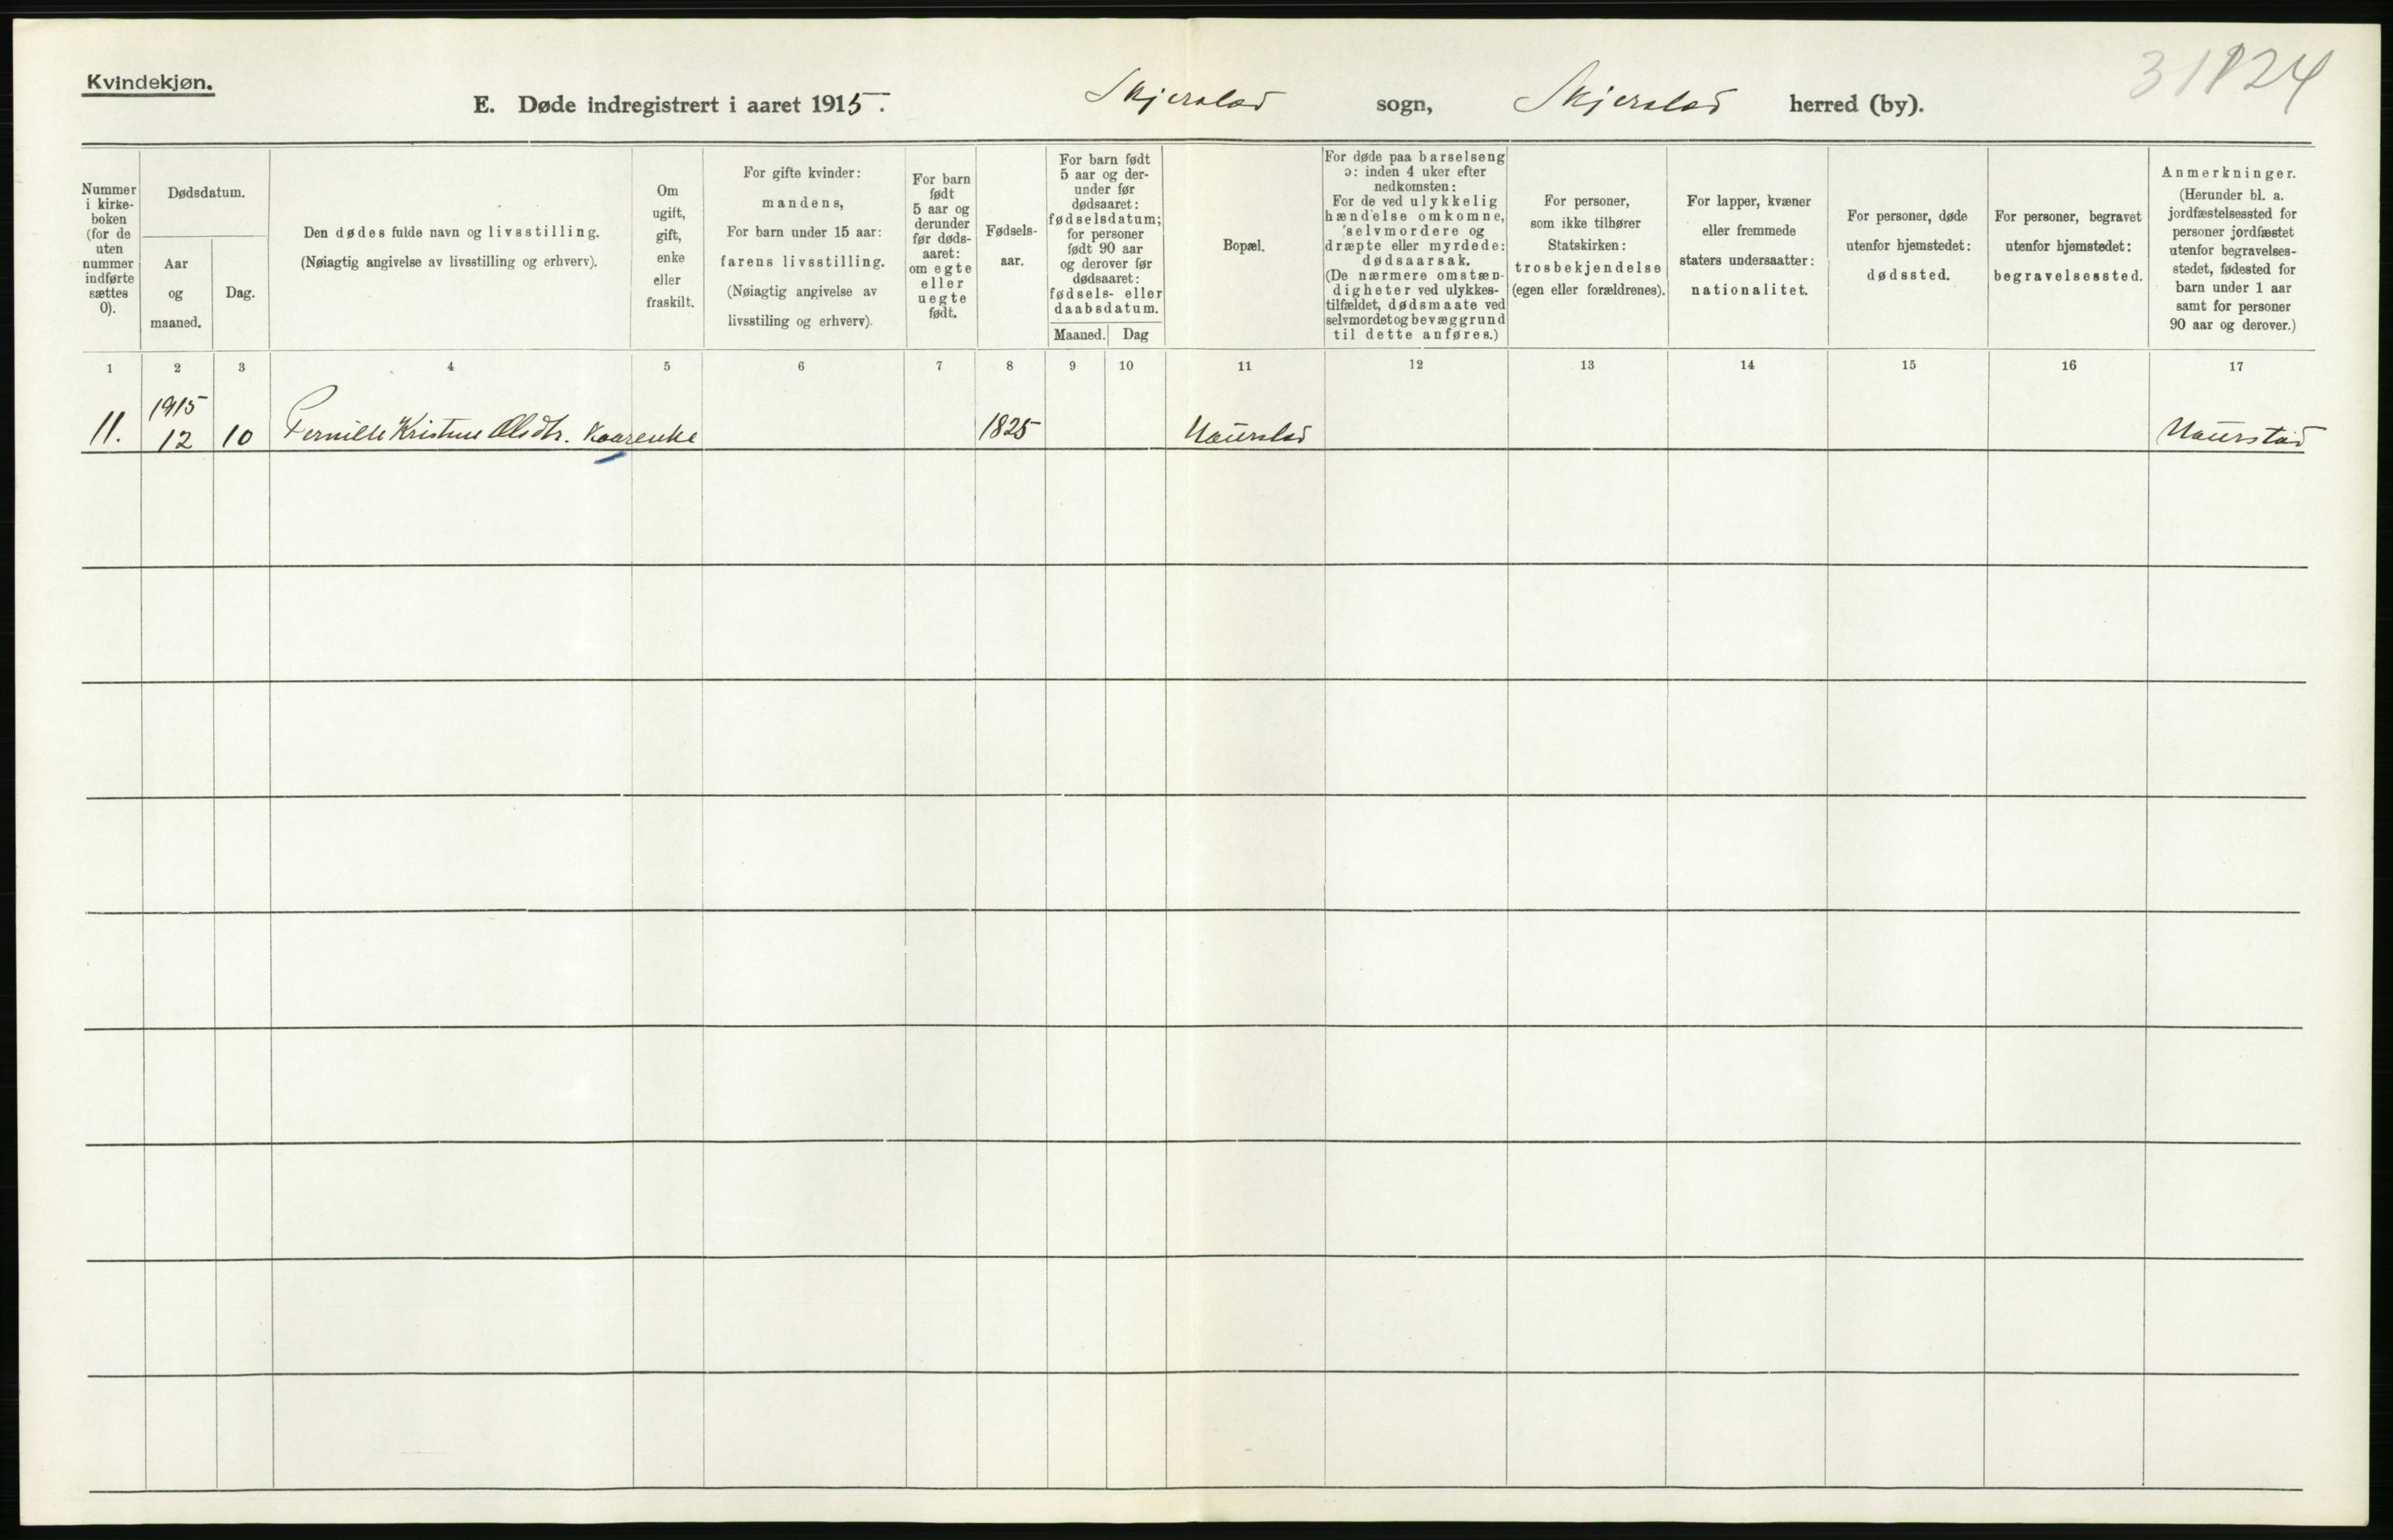 Kvindekjøn.
E. Døde indregistrert i aaret 1915. Skjerstad sogn, Skjerstad herred (by).
Nummer
i kirke-
boken
(for de
uten
nummer
indførte
sættes
0).
Dødsdatum.
Aar
og
maaned.
Dag.
Den dødes fulde navn og livsstilling.
(Nøiagtig angivelse av livsstilling og erhverv).
Om
ugift,
gift,
enke
eller
fraskilt.
For gifte kvinder:
mandens,
For barn under 15 aar:
farens livsstilling.
(Nøiagtig angivelse av
livsstiling og erhverv).
For barn
født
5 aar og
derunder
før døds-
aaret:
om egte
eller
uegte
født.
Fødsels-
aar.
For barn født
5 aar og der-
under før
dødsaaret:
fødselsdatum;
for personer
født 90 aar
og derover før
dødsaaret:
fødsels- eller
daabsdatum.
Maaned. Dag
Bopæl.
For døde paa barselseng
ɔ: inden 4 uker efter
nedkomsten:
For de ved ulykkelig
hændelse omkomne,
selvmordere og
dræpte eller myrdede:
dødsaarsak.
(De nærmere omstæn-
digheter ved ulykkes-
tilfældet, dødsmaate ved
selvmordet og bevæggrund
til dette anføres.)
For personer,
som ikke tilhører
Statskirken:
trosbekjendelse
(egen eller forældrenes).
For lapper, kvæner
eller fremmede
staters undersaatter:
nationalitet.
For personer, døde
utenfor hjemstedet:
dødssted.
For personer, begravet
utenfor hjemstedet:
begravelsessted.
Anmerkninger.
(Herunder bl. a.
jordfæstelsessted for
personer jordfæstet
utenfor begravelses-
stedet, fødested for
barn under 1 aar
samt for personer
90 aar og derover.)
1 2 3 4 5 6 7 8 9 10 11 12 13 14 15 16 17
1915
11. 12 10 Pernille Kristine Olsdtr. Kaarenke 1825 Naurstad Naurstad